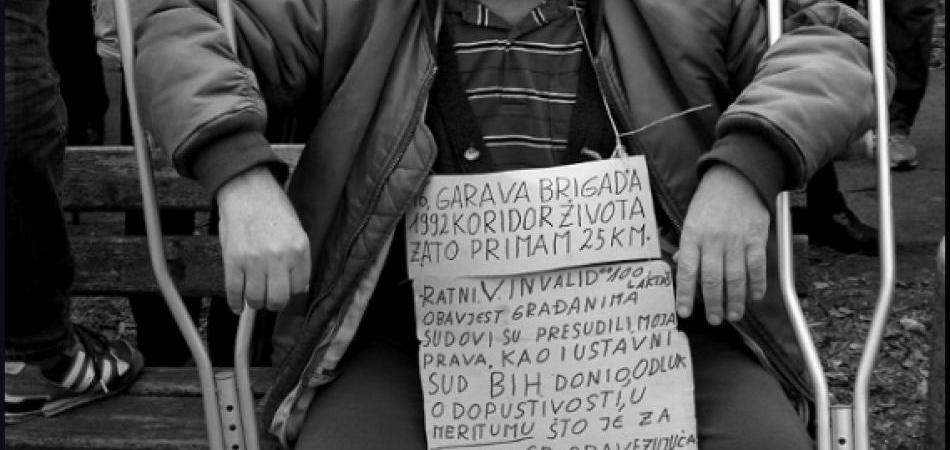 16, GARAVA BRIGADA
1992 KORIDOR ŽIVOTA
ZATO PRIMAM 25 KM.
RATNI V. INVALID 100
LAKTAŠ
OBAVJEST GRAĐANIMA
SUDOVI SU PRESUDILI, MOJA
PRAVA, KAO I USTAVNI
SUD BIH DONIO, ODLUK
O DOPUSTIVOSTI, U
MERITUMU ŠTO JE ZA